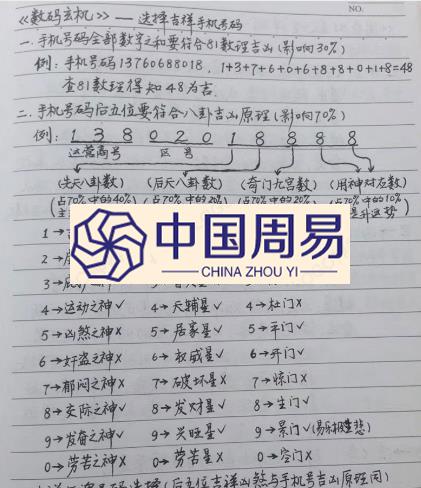 NO.
《数码玄机》——选择吉祥手机号码
一.手机号码全部数字之和要符合81数理吉凶(影响30%)
例:手机号码13760688018, 1+3+7+6+0+6+8+8+0+1+8=48
查81数理得知48为吉.
二.手机号码后五位要符合八卦吉凶原理(影响70%)
例: 1 3 8 0 2 0 1 8 8 8 8
运营商号 区号
(先天八卦数) (后天八卦数) (奇门九宫数) (用神对应数)
(占70%中的40% (占70%中的20% 占70%中的10%
1→
2→
3→
中国周易
CHINA ZHOU YI
4→运动之神✓ 4→天辅星✓ 4→杜门×
5→凶煞之神× 5→居家星✓ 5→平门✓
6→奸盗之神× 6→权威星✓ 6→开门✓
7→郁闷之神× 7→破坏星× 7→惊门×
8→交际之神✓ 8→发财星✓ 8→生门✓
9→发奋之神✓ 9→兴旺星✓ 9→景门✓(易乐极生悲)
0→劳苦之神× 0→劳苦星× 0→空门×
号码选择(后五位吉祥凶煞与手机号吉凶原理同)